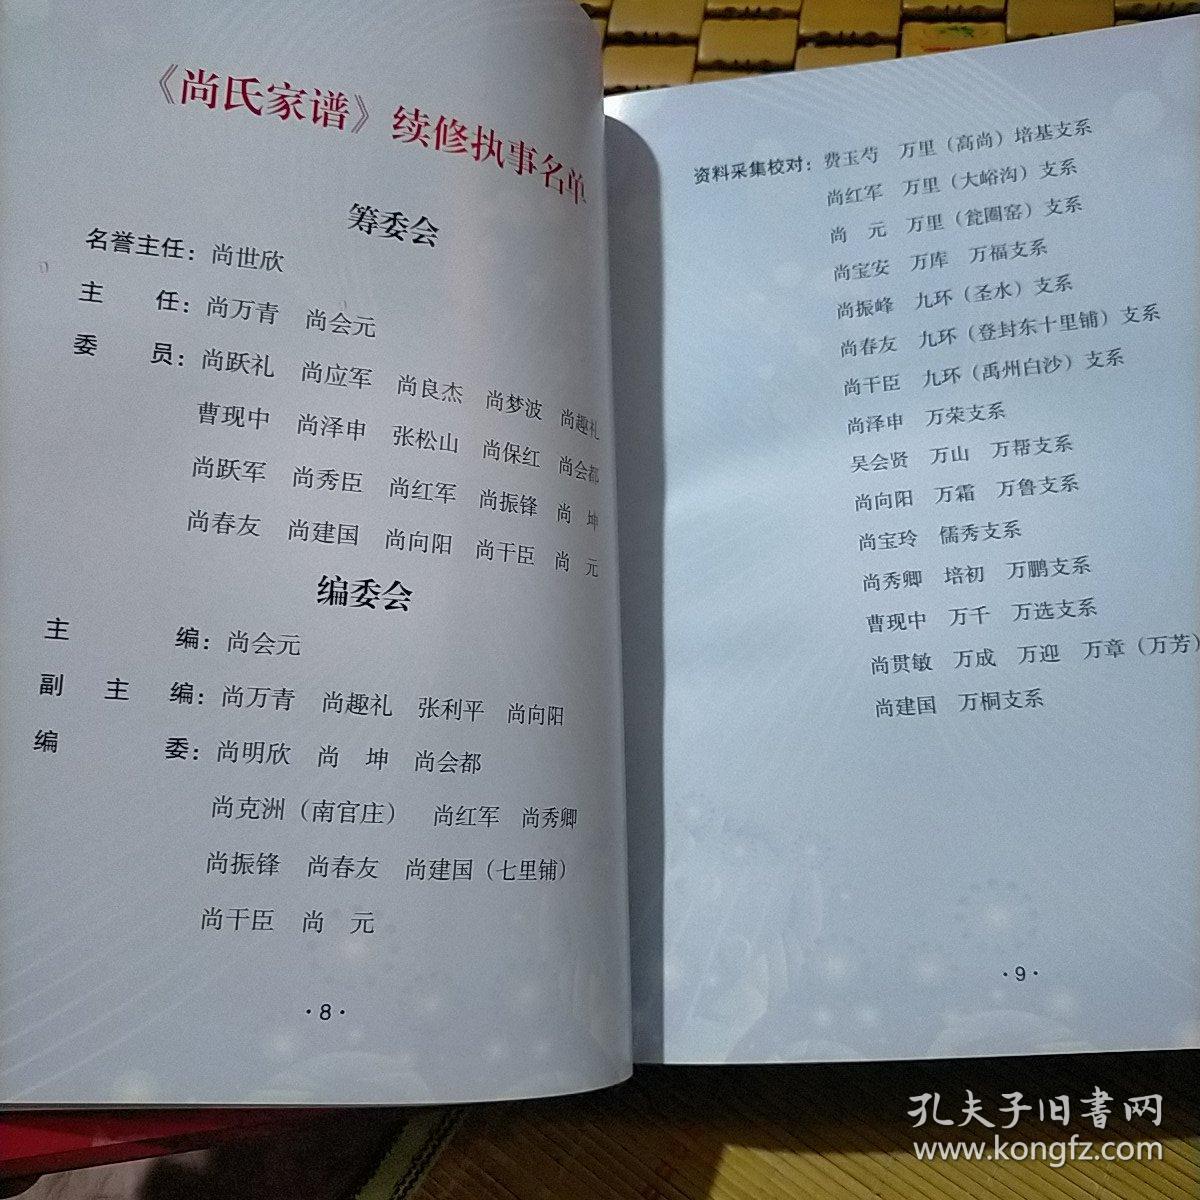 《尚氏家谱》续修执事名单
筹委会
名誉主任：尚世欣
主　任：尚万青　尚会元
委　员：尚跃礼　尚应军　尚良杰　尚梦波　尚趣礼
曹现中　尚泽申　张松山　尚保红　尚会都
尚跃军　尚秀臣　尚红军　尚振锋　尚　坤
尚春友　尚建国　尚向阳　尚干臣　尚　元
编委会
主　编：尚会元
副主编：尚万青　尚趣礼　张利平　尚向阳
编　委：尚明欣　尚　坤　尚会都
尚克洲（南官庄）　尚红军　尚秀卿
尚振锋　尚春友　尚建国（七里铺）
尚干臣　尚　元
·8·
资料采集校对：费玉芍　万里（高尚）培基支系
尚红军　万里（大峪沟）支系
尚　元　万里（瓮圈窑）支系
尚宝安　万库　万福支系
尚振峰　九环（圣水）支系
尚春友　九环（登封东十里铺）支系
尚干臣　九环（禹州白沙）支系
尚泽申　万荣支系
吴会贤　万山　万帮支系
尚向阳　万霜　万鲁支系
尚宝玲　儒秀支系
尚秀卿　培初　万鹏支系
曹现中　万千　万选支系
尚贯敏　万成　万迎　万章（万芳）
尚建国　万桐支系
·9·
孔夫子旧書网
www.kongfz.com